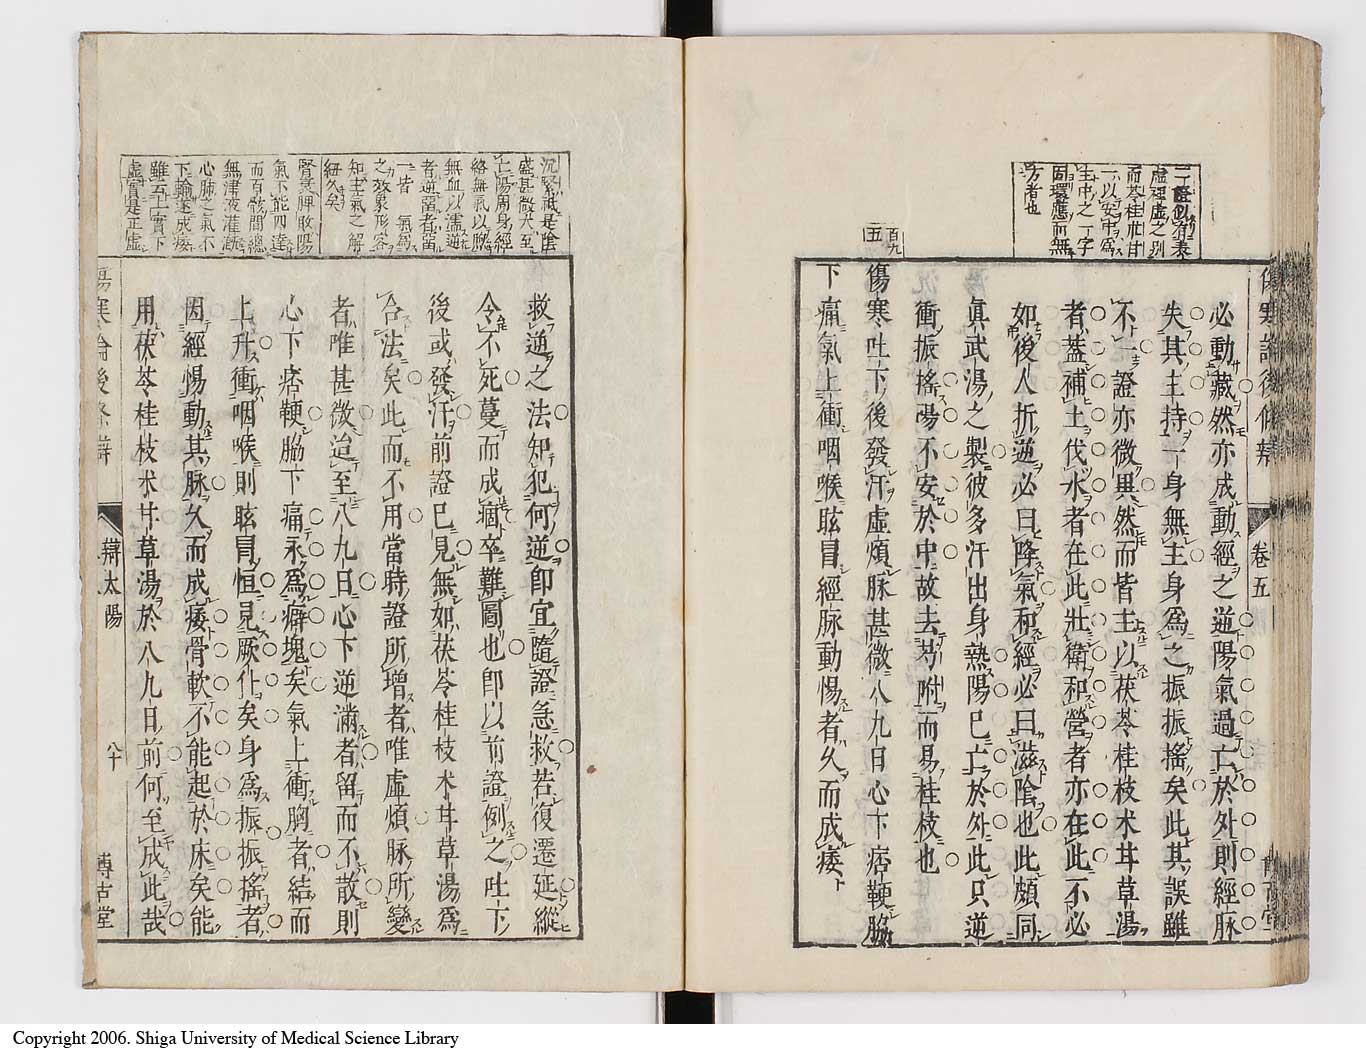 二證以有表
虛裡虛之別
而苓桂朮甘
一以安中爲
主中之一字
同環應而無
方者也
百九
五
卷五
必動藏然亦成動經之逆陽氣過亡於外則經脉
失其主持一身無主身爲之振振搖矣此其誤雖
不一證亦微異然而皆主以茯苓桂枝术甘草湯
者蓋補土伐水者在此壯衛和營者亦在此不必
如後人折逆必曰降氣和經必曰滋陰也此頗同
眞武湯之製彼多汗出身熱陽已亡於外此只逆
衝振搖陽不安於中故去芍附而易桂枝也
傷寒吐下後發汗虛煩脉甚微八九日心下痞鞕脇
下痛氣上衝咽喉眩冒經脉動惕者久而成痿
沉緊祇是陰
盛甚微尤至
亡陽周身經
絡無氣以煦
無血以濡逆
者逆留者留
一皆氣爲
之效象形容
知主氣之解
紐久矣
腎衰脾敗陽
氣不能四達
而百骸間總
無津液灌漑
心肺之氣不
下輸遂成痿
雖吾上實下
虛實是正虛
救逆之法知犯何逆卽宜隨證急救若復遷延縱
令不死蔓而成痼卒難圖也卽以前證例之吐下
後或發汗前證已見無如茯苓桂枝术甘草湯爲
合法矣此而不用當時證所增者唯虛煩脉所變
者唯甚微迨至八九日心下逆滿者留而不散則
心下痞鞕脇下痛永爲癖塊矣氣上衝胸者結而
上升衝咽喉則眩冒恒見厥仆矣身爲振振搖者
因經惕動其脉久而成痿骨軟不能起於床矣能
用茯苓桂枝术甘草湯於八九日前何至成此哉
傷寒論後條辯
辯太陽
八十
博古堂